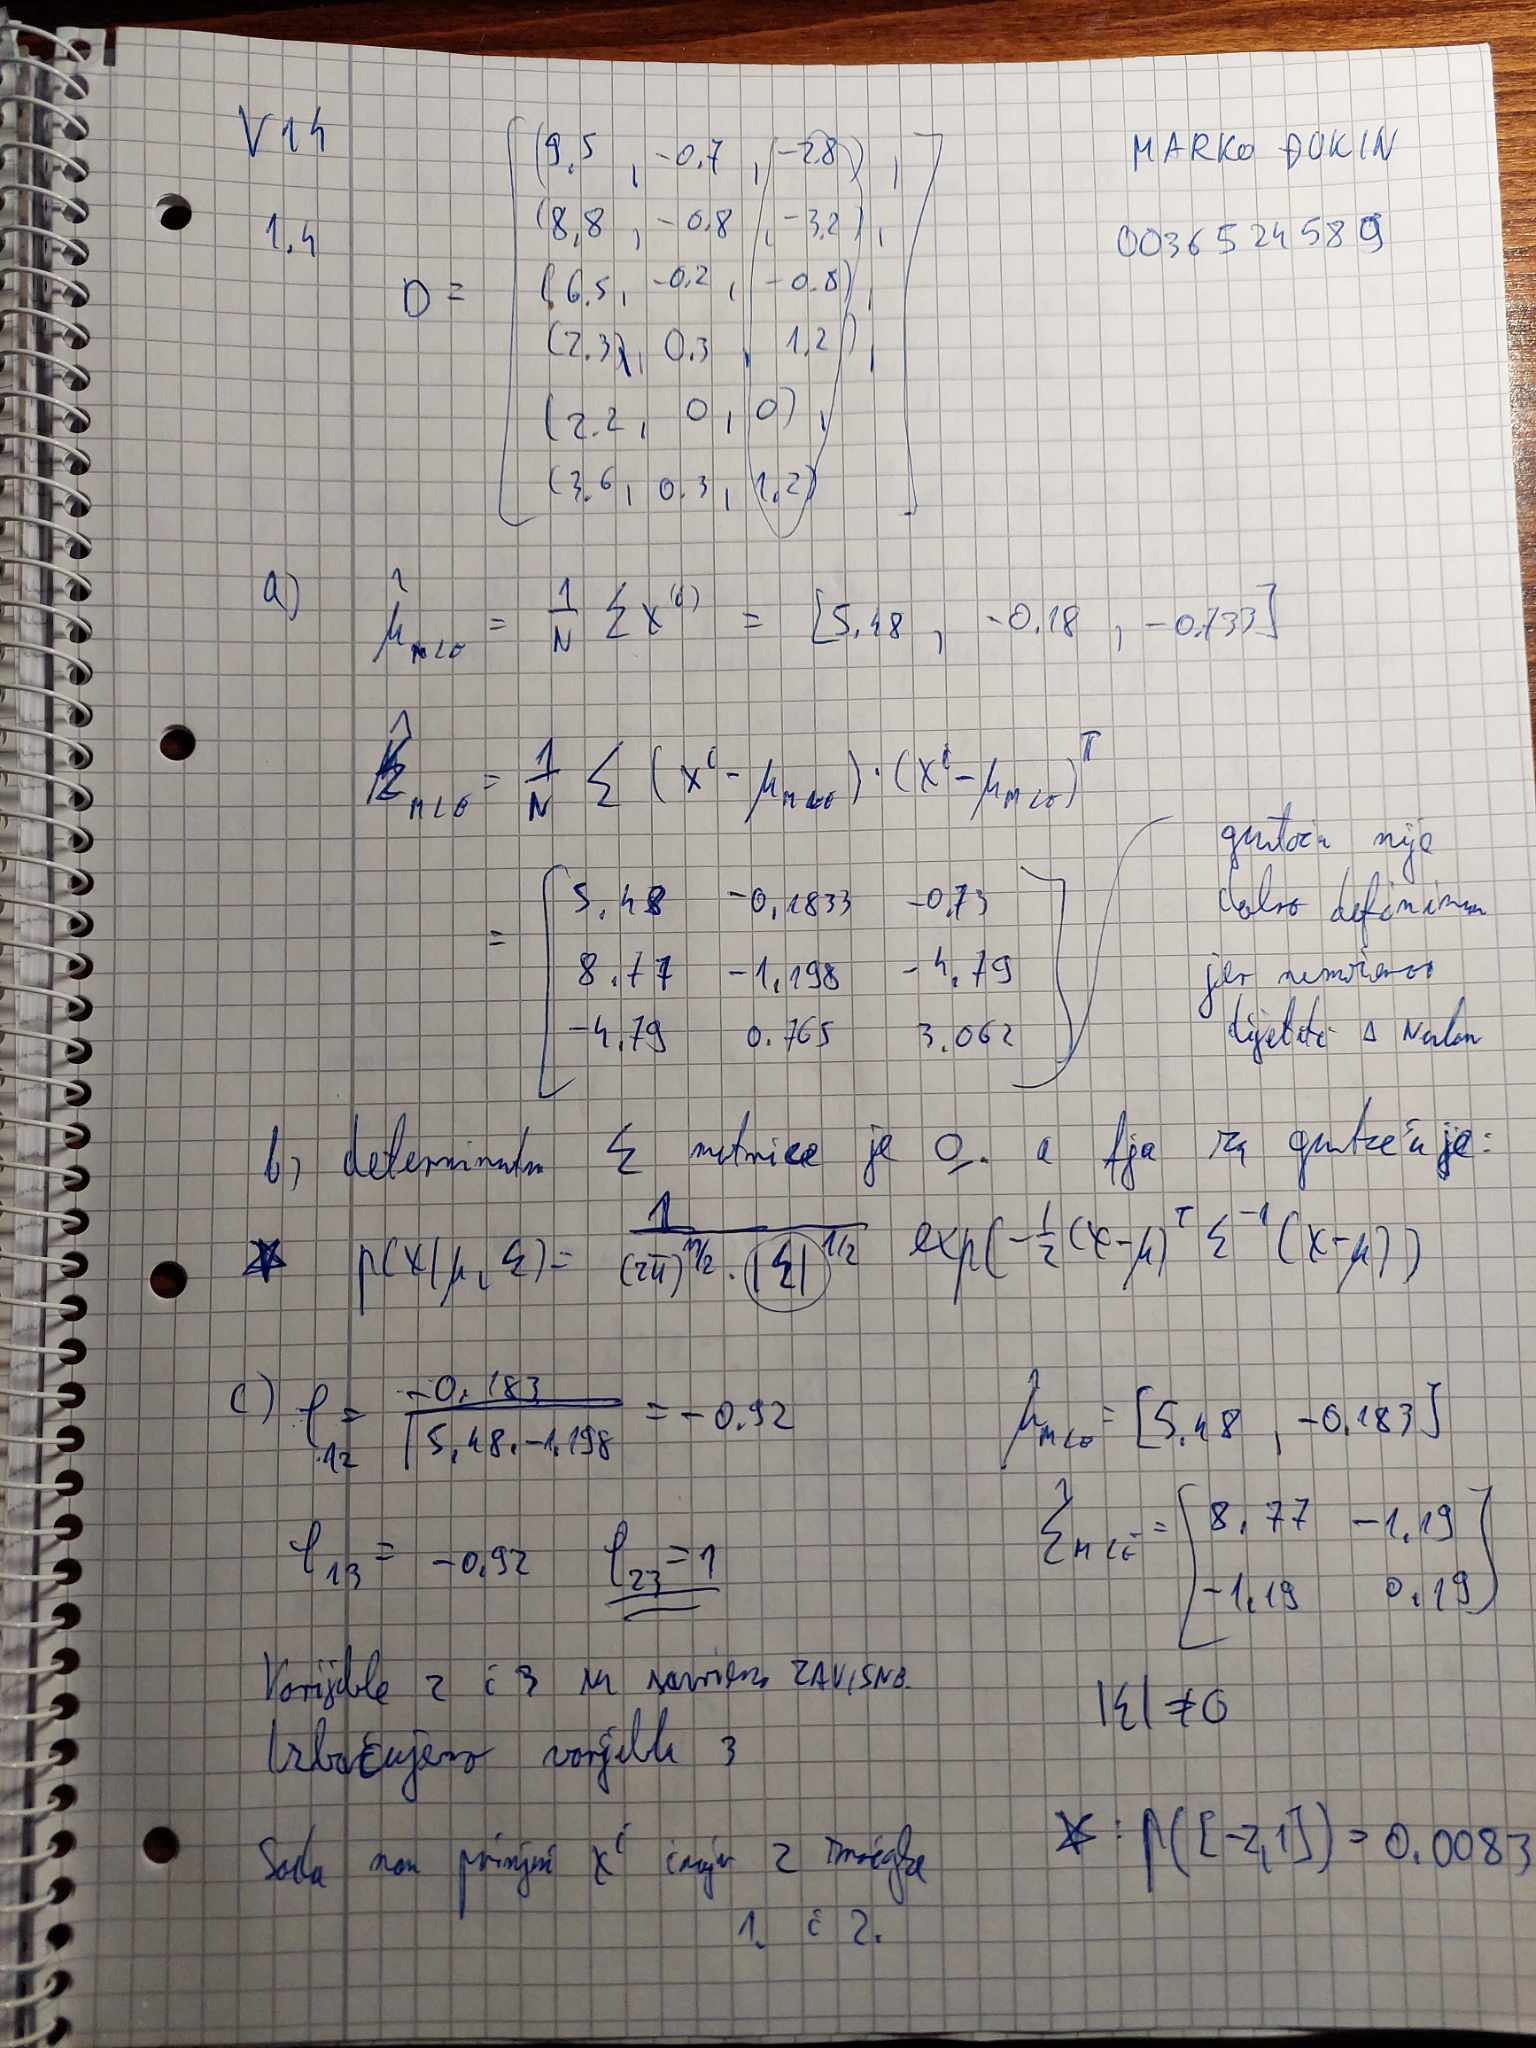 V14
MARKO ĐUKIN
1.4
0036524589
D = [ (9,5 , -0,7 , -2.8) ,
(8,8 , -0.8 , -3,2) ,
(6.5 , -0.2 , -0.8) ,
(2.3) , 0.3 , 1.2) ,
(2.2 , 0 , 0) ,
(3.6 , 0.3 , 1.2) ]
a) μ̂_MLE = 1/N Σ x^(i) = [5,48 , -0.18 , -0.733]
Σ̂_MLE = 1/N Σ (x^i - μ_MLE) · (x^i - μ_MLE)^T
= [ 5,48 -0,1833 -0,73
8.77 -1,198 -4,79
-4,79 0.765 3.062 ]
gustoća nije
dobro definirana
jer nemožemo
dijeliti s nulom
b) determinanta Σ matrice je 0. a fja za gustoću je:
* p(x|μ, Σ) = 1/((2π)^(n/2) · |Σ|^(1/2)) exp(-1/2 (x-μ)^T Σ^-1 (x-μ))
c) ρ_12 = -0,183/√(5,48·-1,198) = -0.92
μ̂_MLE = [5,48 , -0,183]
ρ_13 = -0,92 ρ_23 = 1
Σ̂_MLE = [ 8,77 -1,19
-1,19 0,19 ]
Varijable 2 i 3 su ZAVISNE.
Izbacujemo varijablu 3
|Σ| ≠ 0
Sada nam primjeri x^i imaju 2 značajke
1. i 2.
* : p([-2,1]) = 0.0083